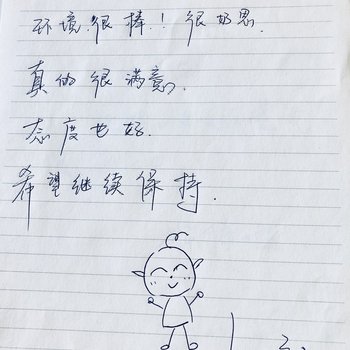 环境很棒!很奶思
真的很满意,
态度也好.
希望继续保持.